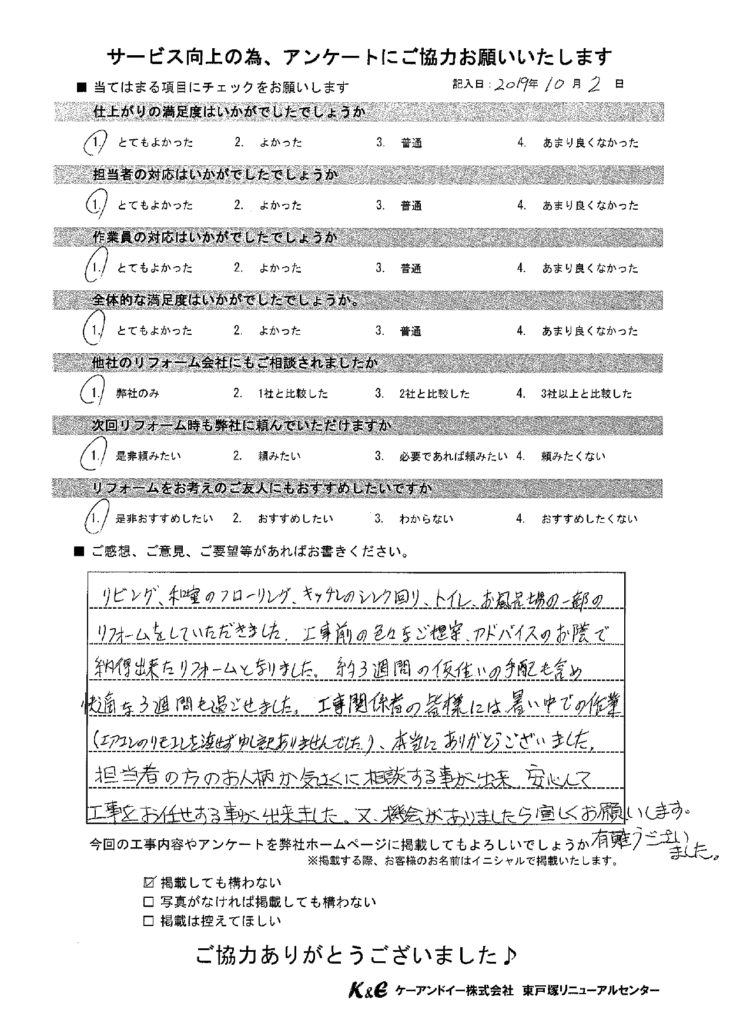 サービス向上の為、アンケートにご協力お願いいたします
■ 当てはまる項目にチェックをお願いします
記入日：2019年 10月 2日
仕上がりの満足度はいかがでしたでしょうか
1. とてもよかった 2. よかった 3. 普通 4. あまり良くなかった
担当者の対応はいかがでしたでしょうか
1. とてもよかった 2. よかった 3. 普通 4. あまり良くなかった
作業員の対応はいかがでしたでしょうか
1. とてもよかった 2. よかった 3. 普通 4. あまり良くなかった
全体的な満足度はいかがでしたでしょうか。
1. とてもよかった 2. よかった 3. 普通 4. あまり良くなかった
他社のリフォーム会社にもご相談されましたか
1. 弊社のみ 2. 1社と比較した 3. 2社と比較した 4. 3社以上と比較した
次回リフォーム時も弊社に頼んでいただけますか
1. 是非頼みたい 2. 頼みたい 3. 必要であれば頼みたい 4. 頼みたくない
リフォームをお考えのご友人にもおすすめしたいですか
1. 是非おすすめしたい 2. おすすめしたい 3. わからない 4. おすすめしたくない
■ ご感想、ご意見、ご要望等があればお書きください。
リビング、和室のフローリング、キッチンのシンク回り、トイレ、お風呂場の一部の
リフォームをしていただきました。工事前の色々なご提案、アドバイスのお陰で
納得出来たリフォームとなりました。約3週間の仮住いの手配も含め
快適な3週間を過ごせました。工事関係者の皆様には暑い中での作業
(エアコンのリモコンを渡せず申し訳ありませんでした)、本当にありがとうございました。
担当者の方のお人柄か気さくに相談する事が出来、安心して
工事をお任せする事が出来ました。又、機会がありましたら宜しくお願いします。
有難うござい
ました。
今回の工事内容やアンケートを弊社ホームページに掲載してもよろしいでしょうか
※掲載する際、お客様のお名前はイニシャルで掲載いたします。
☑ 掲載しても構わない
□ 写真がなければ掲載しても構わない
□ 掲載は控えてほしい
ご協力ありがとうございました♪
K&E ケーアンドイー株式会社 東戸塚リニューアルセンター